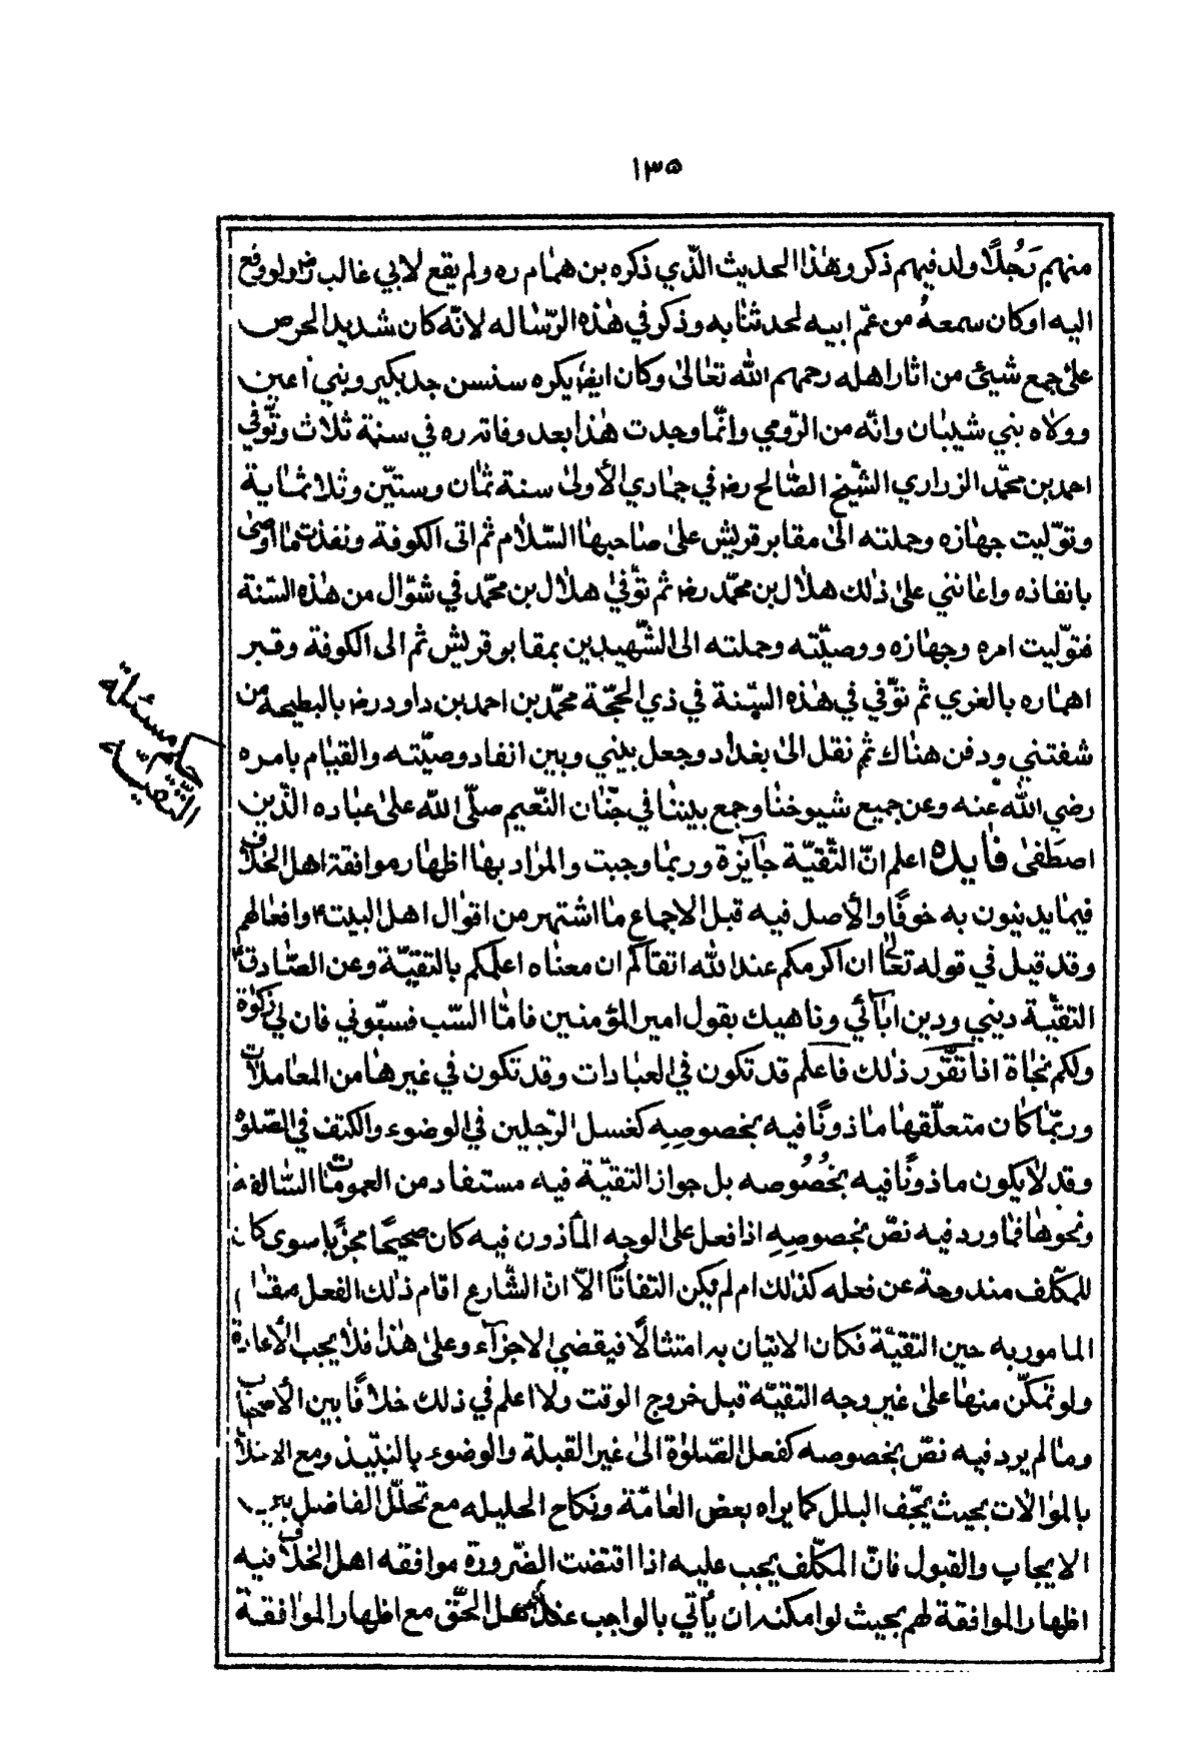 ١٣٥
منهم رَجُلًا ولد فيهم ذكر وهٰذا الحديث الّذي ذكره بن همّام ره ولم يقع لابي غالب رض ولو وقع
اليه او كان سمعهُ من عمّ ابيه لحدثنا به وذكر في هٰذه الرّساله لانّه كان شديد الحرص
علىٰ جمع شيئ من اثار اهله رحمهم الله تعالىٰ وكان ايضا يكره سنسن جد بكير وبني اعين
وولاه بني شيبان وانّه من الرّومي وانّما وجدت هٰذا بعد وفاته ره في سنة ثلاث وتوّفي
احمد بن محمّد الزراري الشّيخ الصّالح رض في جمادي الأولىٰ سنة ثمان وستّين وثلاثماية
وتوّليت جهازه وحملته الىٰ مقابر قريش علىٰ صاحبها السّلام ثم اتى الكوفة ونفذت ما اوصىٰ
بانفاذه واعانني علىٰ ذٰلك هلال بن محمّد رض ثم توّفيٰ هلال بن محمّد في شوّال من هٰذه السّنة
فتوّليت امره وجهازه ووصيّته وحملته الى الشّهيدين بمقابر قريش ثم الى الكوفة وقبر
اهماره بالغري ثم توّفي في هٰذه السّنة في ذي الحجّة محمّد بن احمد بن داود رض بالبطيحه من
شفتني ودفن هناك ثم نقل الىٰ بغداد وجعل بيني وبين انفاد وصيّته والقيام بامره
رضي الله عنه وعن جميع شيوخنا وجمع بيننا في جّنان النّعيم صلّى الله علىٰ عباده الّذين
اصطفىٰ فايده اعلم انّ التّقيّة جآيزة وربما وجبت والمراد بها اظهار موافقة اهل الخلاف
فيما يدنيون به خوفًا والأصل فيه قبل الاجماع ما اشتهر من اقوال اهل البيت ۴ وافعالهم
وقد قيل في قوله تعالىٰ ان اكرمكم عند الله اتقاكم ان معناه اعلمكم بالتقيّة وعن الصّادق ۴
التقيّة ديني ودين ابآئي وناهيك بقول امير المؤمنين فامّا السّب فسبّوني فان لي زكوٰة
ولكم نجاة اذا تقّرر ذٰلك فاعلم قد تكون في العبادات وقد تكون في غيرها من المعاملات
وربّما كان متعلّقها ماذونًا فيه بخصوصِهِ كغسل الرّجلين في الوضوء والكتف في الصّلوٰة
وقد لا يكون ماذونًا فيه بخُصُوصه بل جواز التقيّة فيه مستفاد من العمومات السّالفة
ونحوها فما ورد فيه نصّ بخصوصِهِ اذا فعل على الوجه المأذون فيه كان صحيحًا مجزيا سوى كان
للمكّلف مندوحة عن فعله كذٰلك ام لم يكن التفاتًا الّا انّ الشّارع اقام ذٰلك الفعل مقام
المامور به حين التقيّة فكان الاتيان به امتثالًا فيقضي الاجزآء وعلىٰ هٰذا فلا يجب الأعادة
ولو تمكّن منها علىٰ غير وجه التقيّه قبل خروج الوقت ولا اعلم في ذلك خلافًا بين الأصحاب
وما لم يرد فيه نصّ بخصوصه كفعل الصّلوٰة الىٰ غير القبلة والوضوء بالنبّيذ ومع الاخلال
بالموالات بحيث يجّف البلل كما يراه بعض العامّة ونكاح الحليله مع تحلّل الفاضل بين
الايجاب والقبول فانّ المكّلف يجب عليه اذا اقتضت الضّرورة موافقه اهل الخلاف فيه
اظهار الموافقة لهم بحيث لو امكنه ان يأتي بالواجب عند اهل الحّق مع اظهار الموافقة
حكم مسئلة
التّقيّه